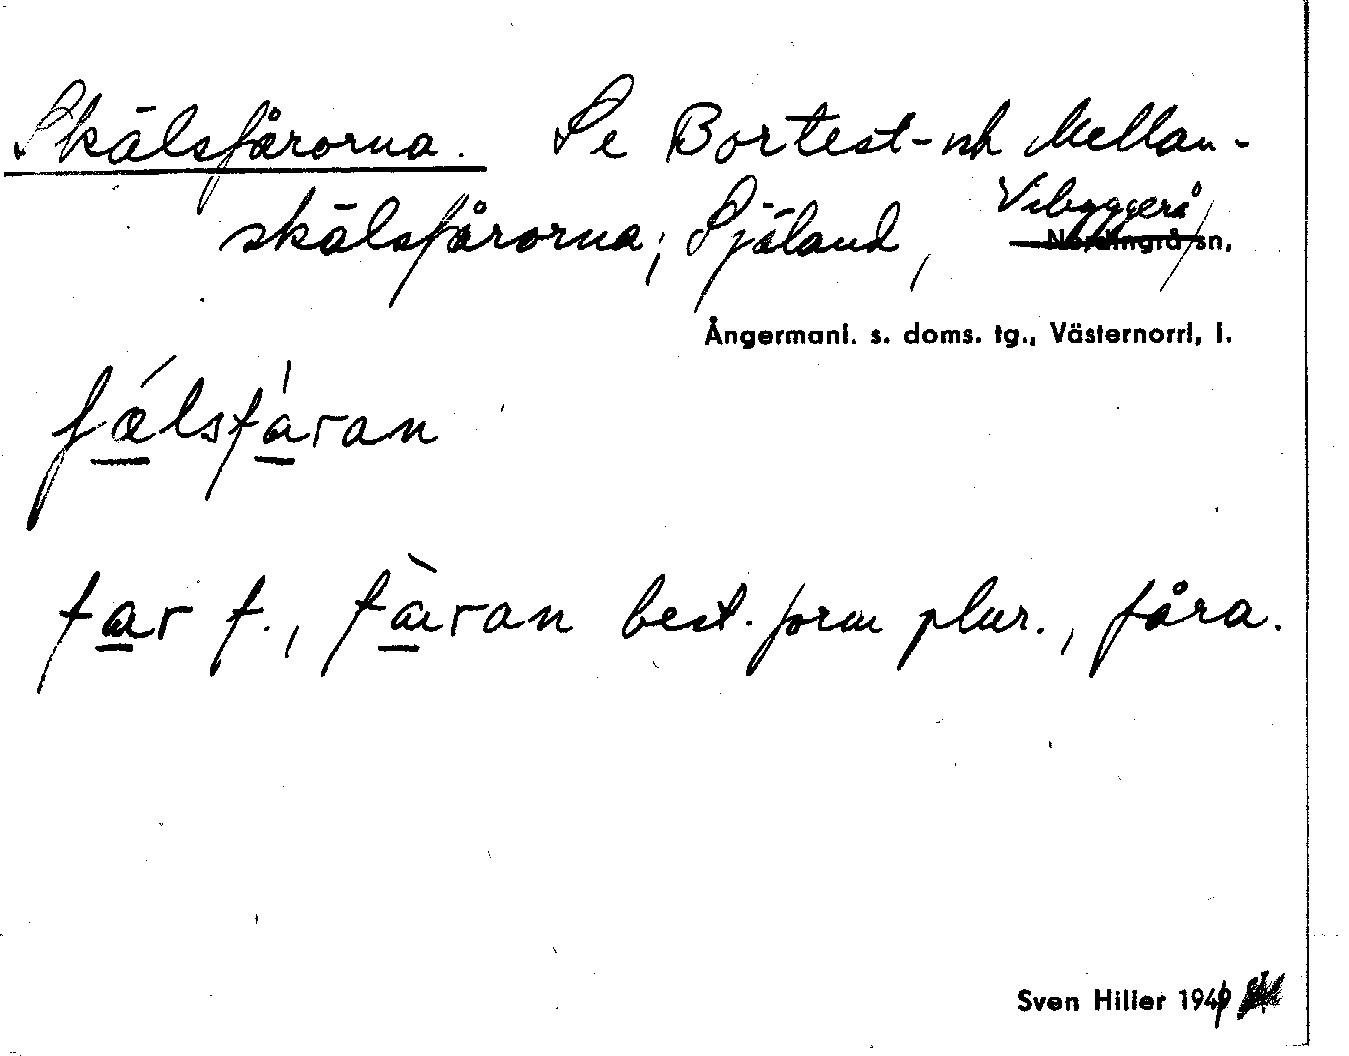 Skälsfårorna. Se Bortest- och Mellan-
skälsfårorna; Själand, Vibyggerå
Nordingrå sn,
Ångermanl. s. doms. tg., Västernorrl, l.
fálsfáran
far f., fàran best. form plur., fåra.
Sven Hiller 1949